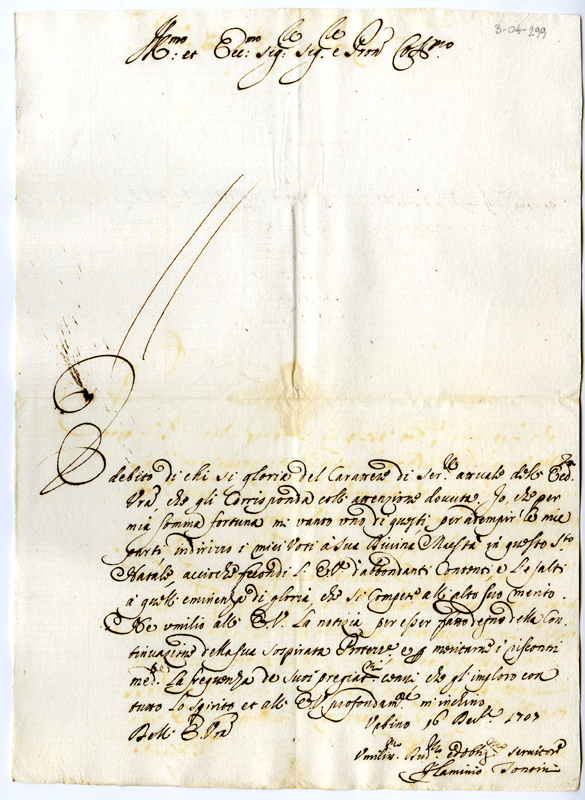 3-04-299
Ill.mo et Ecc.mo Sig.re Sig.re e Pron Col.mo
È debito di chi si gloria del Carattere di Ser.re attuale dell' Ecc.za
Vra, che gli Corrisponda coll' attenzione dovuta. Io, che per
mia somma fortuna mi vanto uno di questi, per adempir' le mie
parti, indirizzo i miei Voti à Sua Divina Maestà in questo S.to
Natale, acciochè fecondi l' E.V. d'abbondanti Contenti, e La salti
à quell' eminenza di gloria, che si Compete all' alto suo merito.
Ne umilio all' E.V. La notizia per esser fatto degno della Con,
tinuazione della sua sospirata Protezze e meritarne i riscontri
med. La frequenza de suoi pregiat.mi cenni, che gli imploro con
tutto Lo Spirito et all' E.V. profondam.te m' inchino
Dell' E. Vra
Urbino 16 Dec.e 1707
Umiliss.mo Div.mo ed Obblig.mo Servitore
Flaminio